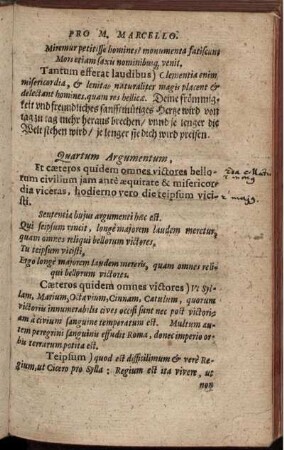 PRO M. MARCELLO.
Miremur petiisse homines, monumenta fatiscunt
Mors etiam saxis nominibusq; venit.
Tantum efferat laudibus) Clementia enim,
misericordia, & lenitas naturaliter magis placent &
delectant homines, quam res bellicæ. Deine frömmig-
keit vnd freundliches sanfftmütiges Hertze wird von
tag zu tag mehr heraus brechen, vnnd je lenger die
Welt stehen wird, je lenger sie dich wird preisen.
Quartum Argumentum,
Et cæteros quidem omnes victores bello-
rum civilium jam antè æquitate & misericor-
dia viceras, hodierno vero die teipsum vici-
sti.
Sententia hujus argumenti hæc est.
Qui seipsum vincit, longè majorem laudem meretur,
quam omnes reliqui bellorum victores,
Tu teipsum vicisti,
Ergo longè majorem laudem meteris, quam omnes reli-
qui bellorum victores.
Cæteros quidem omnes victores) Vt Syl-
lam, Marium, Octavium, Cinnam, Catulum, quorum
victoriis innumerabiles cives occisi sunt nec post victori-
am à civium sanguine temperatum est. Multum au-
tem peregrini sanguinis effudit Roma, donec imperio or-
bis terrarum potita est.
Teipsum) quod est difficilimum & verè Re-
gium, ut Cicero pro Sylla: Regium est ita vivere, ut
non